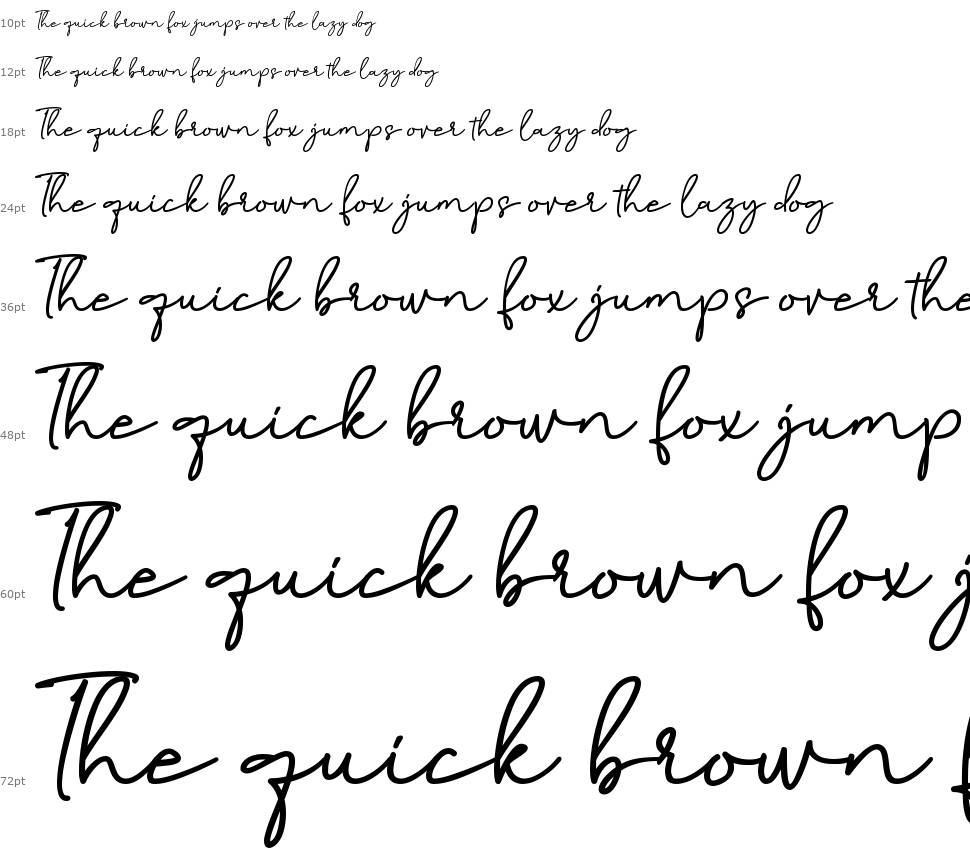 10pt The quick brown fox jumps over the lazy dog
12pt The quick brown fox jumps over the lazy dog
18pt The quick brown fox jumps over the lazy dog
24pt The quick brown fox jumps over the lazy dog
36pt The quick brown fox jumps over the
48pt The quick brown fox jump
60pt The quick brown fox j
72pt The quick brown f